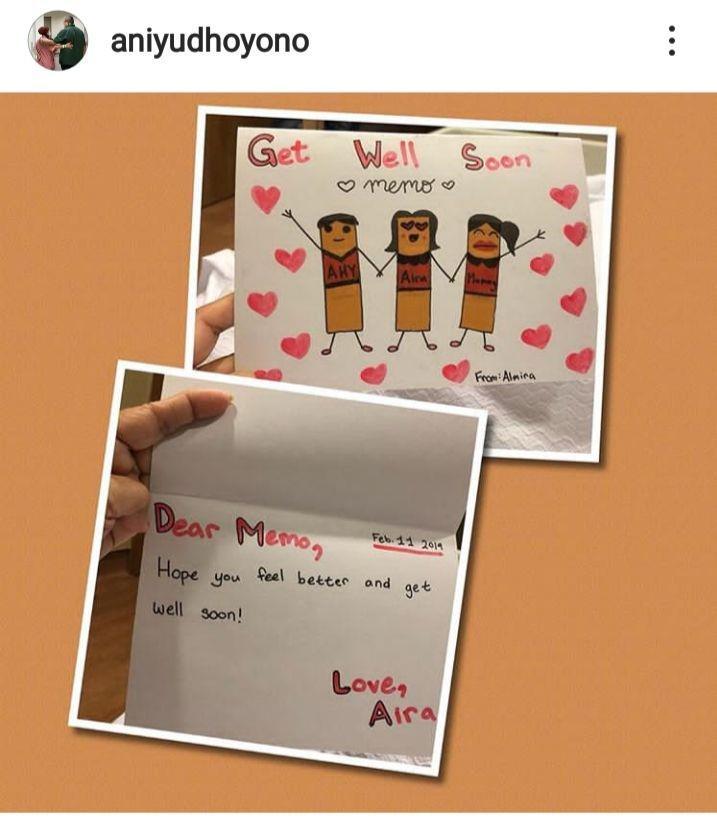 aniyudhoyono
Get Well Soon
♡ memo ♡
AHY Aira Mommy
From: Almira
Dear Memo,
Feb. 11 2019
Hope you feel better and get
well soon!
Love,
Aira